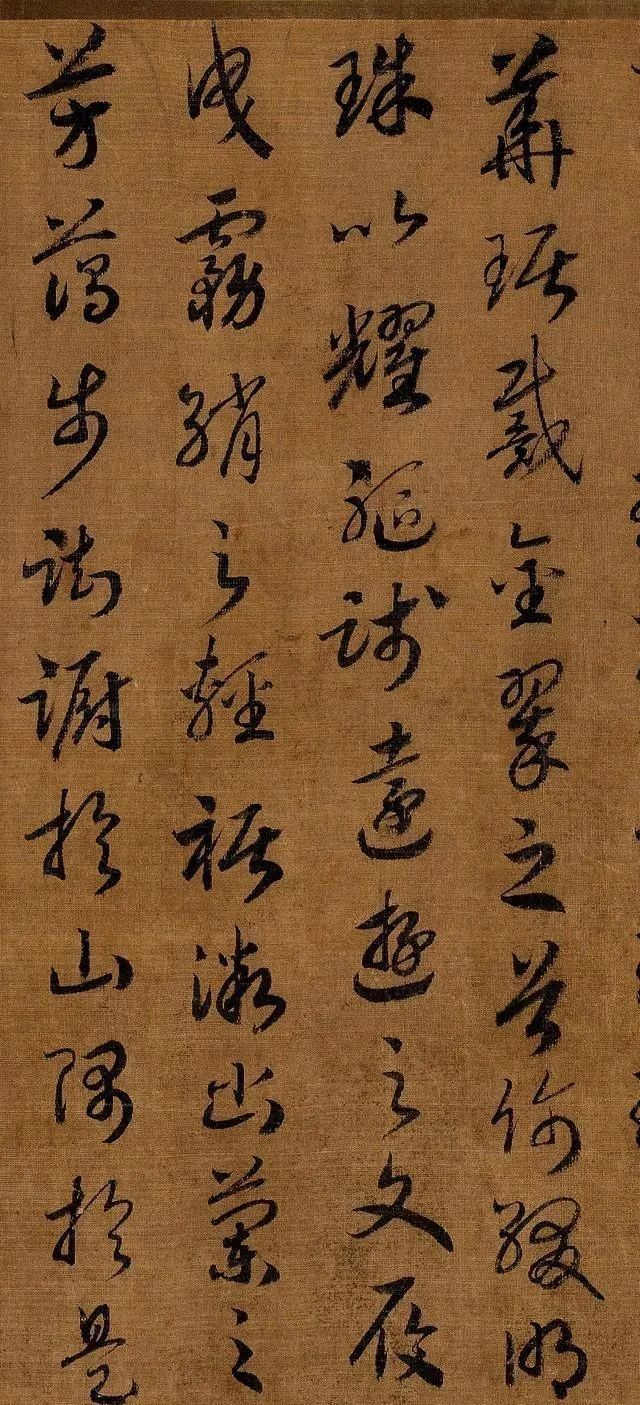 華琚戴金翠之首飾綴明
珠以耀軀踐遠遊之文履
曳霧綃之輕裾微幽蘭之
芳藹步踟躕於山隅於是